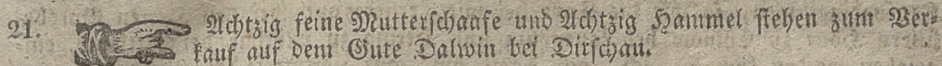 21. Achtzig feine Mutterschaafe und Achtzig Hammel stehen zum Ver=
kauf auf dem Gute Dalwin bei Dirschau.